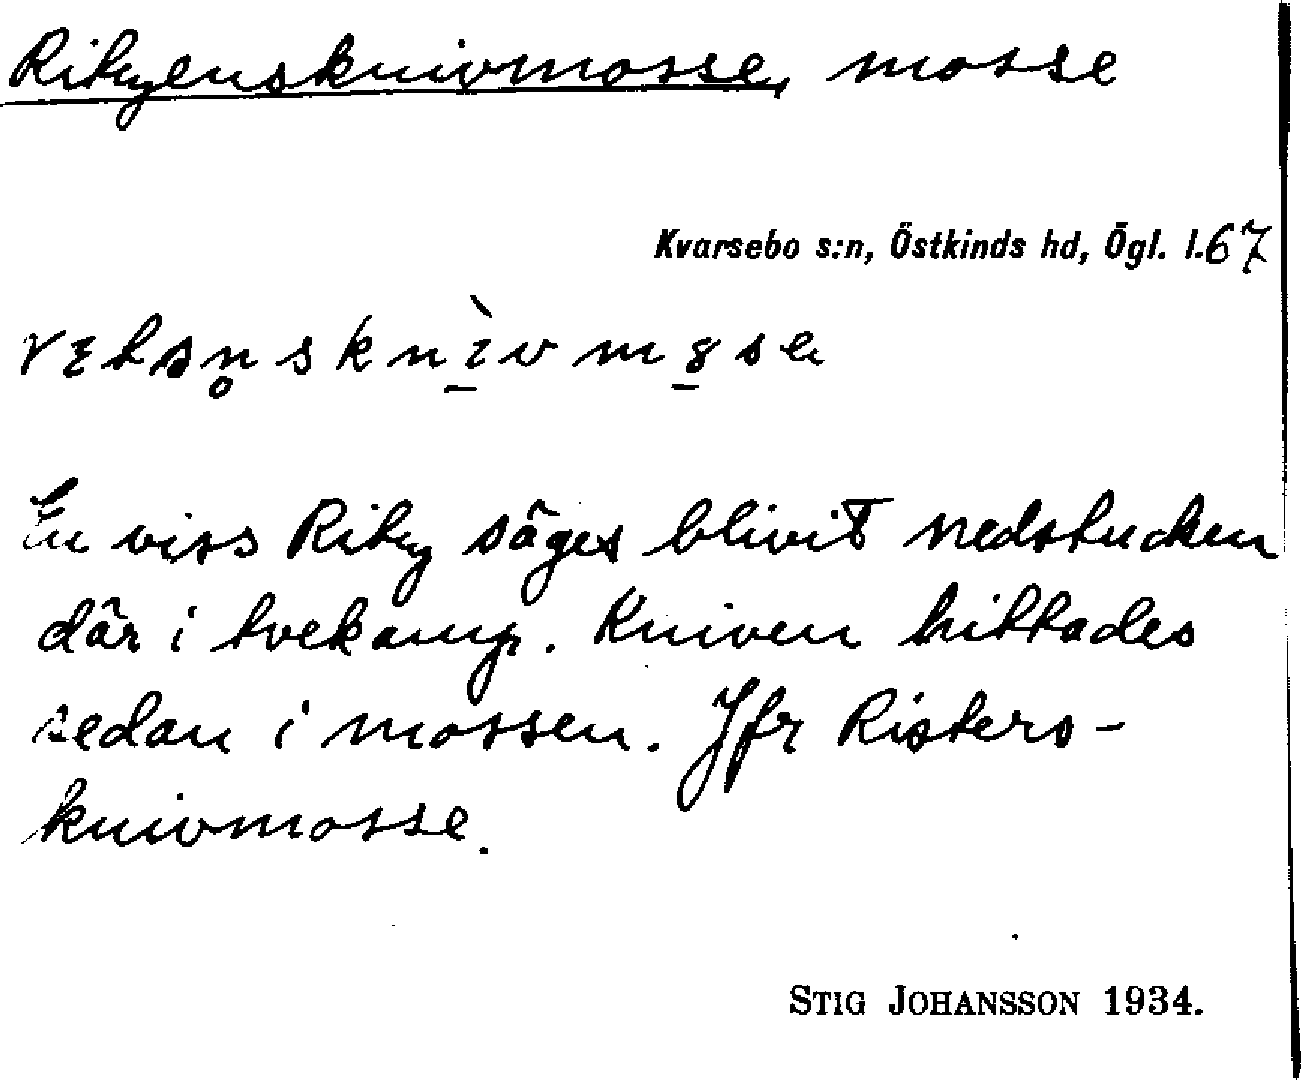 Rityenskuivmosse, mosse
Kvarsebo s:n, Östkinds hd, Ögl. l.67
En viss Rity säges blivit nedstucken
där i tvekamp. Kniven hittades
sedan i mossen. Jfr Risters-
knivmosse.
STIG JOHANSSON 1934.